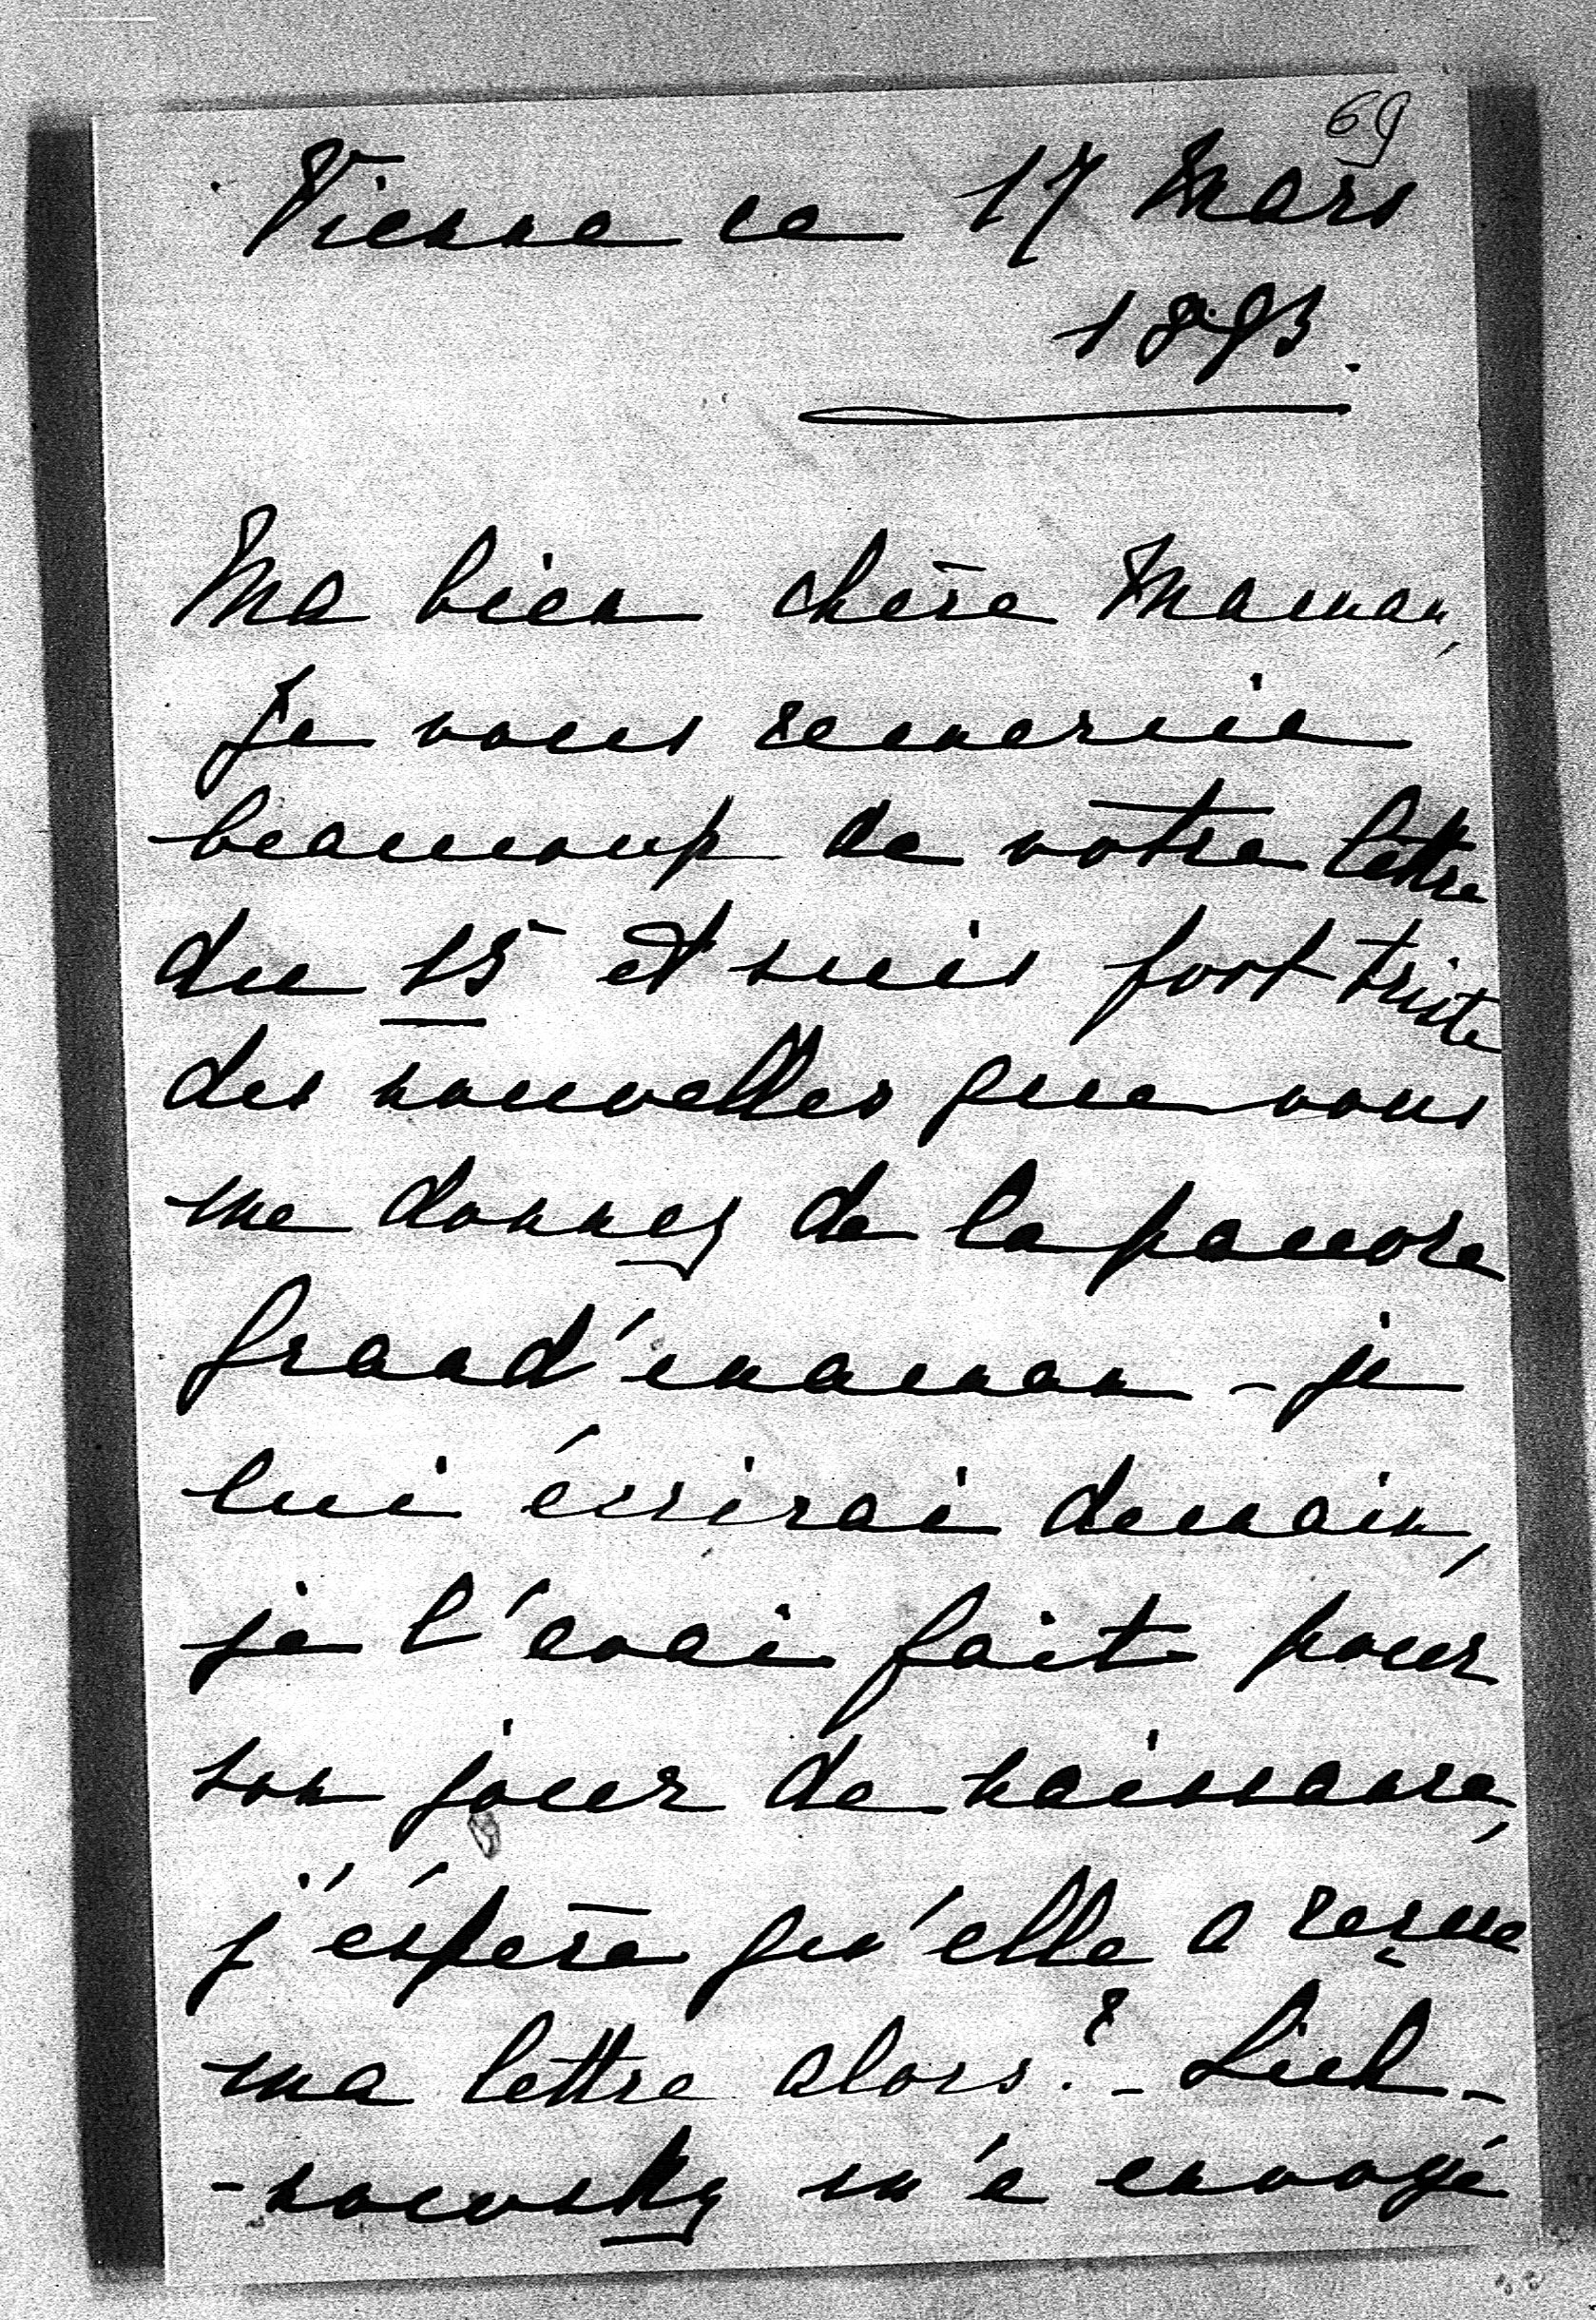 69
Vienne ce 17 Mars
1893.
Ma bien chère Maman,
Je vous remercie
beaucoup de votre lettre
du 15 et suis fort triste
des nouvelles que vous
me donnez de la pauvre
Grand'maman - je
lui écrirai demain,
je l'avai fait pour
son jour de naissance,
j'éspère qu'elle a reçue
ma lettre alors? - Lich-
-nowsky m'a envoyé